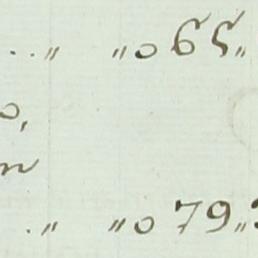 ..„ „065„
o,
n
.„ „079„